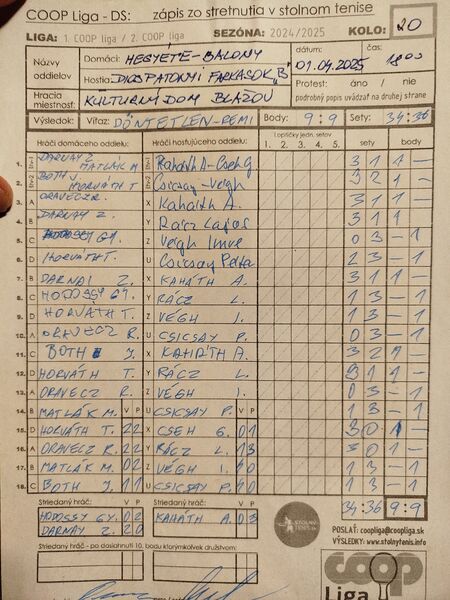 COOP Liga - DS: zápis zo stretnutia v stolnom tenise
LIGA: 1. COOP liga / 2. COOP liga SEZÓNA: 2024/2025 KOLO: 20
Názvy oddielov Domáci: HEGYÉTE-BALONY dátum: 01.04.2025 čas: 18:00
Hostia: DIOSPATONYI FARKASOK „B" Protest: áno / nie
Hracia miestnosť: KULTURNÝ DOM BLAŽOV podrobný popis uvádzať na druhej strane
Výsledok: Víťaz: DÖNTETLEN-REMI Body: 9:9 Sety: 34:36
Hráči domáceho oddielu: Hráči hosťujúceho oddielu: Loptičky jedn. setov sety body
1. 2. 3. 4. 5.
1. DARNAY Z. MATLÁK M. Kahaith A-Cseh G 3 1 1 -
2. BOTH J. HORVÁTH T Csicsay-Végh 3 2 1 -
3. A ORAVECZ R. X Kahaith A. 3 1 1 -
4. B DARNAY Z. Y Rácz Lajos 3 1 1
5. C HODOSSY GY. Z Végh Imre 0 3 - 1
6. D HORVÁTH T. U Csicsay Péter 2 3 - 1
7. B DARNAI Z. X KAHÁTH A. 3 1 1 -
8. C HODOSSY GY. Y RÁCZ L. 1 3 - 1
9. D HORVÁTH T. Z VÉGH I. 2 3 - 1
10. A ORAVECZ R. U CSICSAY P. 0 3 - 1
11. C BOTH J. X KAHÁTH A. 3 2 1 -
12. D HORVÁTH T Y RÁCZ L. 3 1 1 -
13. A ORAVECZ R. Z VÉGH I. 0 3 - 1
14. B MATLÁK M. V P U CSICSAY P. V P 1 3 - 1
15. D HORVÁTH T. 2 2 X CSEH G. 0 1 3 0 1 -
16. A ORAVECZ R. 2 2 Y RÁCZ L. 1 3 3 0 1 -
17. B MATLÁK M. 0 2 Z VÉGH I. 4 0 1 3 - 1
18. C BOTH J. 1 1 U CSICSAY P. 4 0 1 3 - 1
Striedaný hráč: V P Striedaný hráč: V P 34:36 9:9
HODOSSY GY. 0 2 KAHATH A. 0 3
DARNAY Z. 2 0
STOLNÝ TENIS
POSLAŤ: coopliga@coopliga.sk
VÝSLEDKY: www.stolnytenis.info
Striedaný hráč - po dosiahnutí 10. bodu ktorýmkoľvek družstvom:
coop
Liga